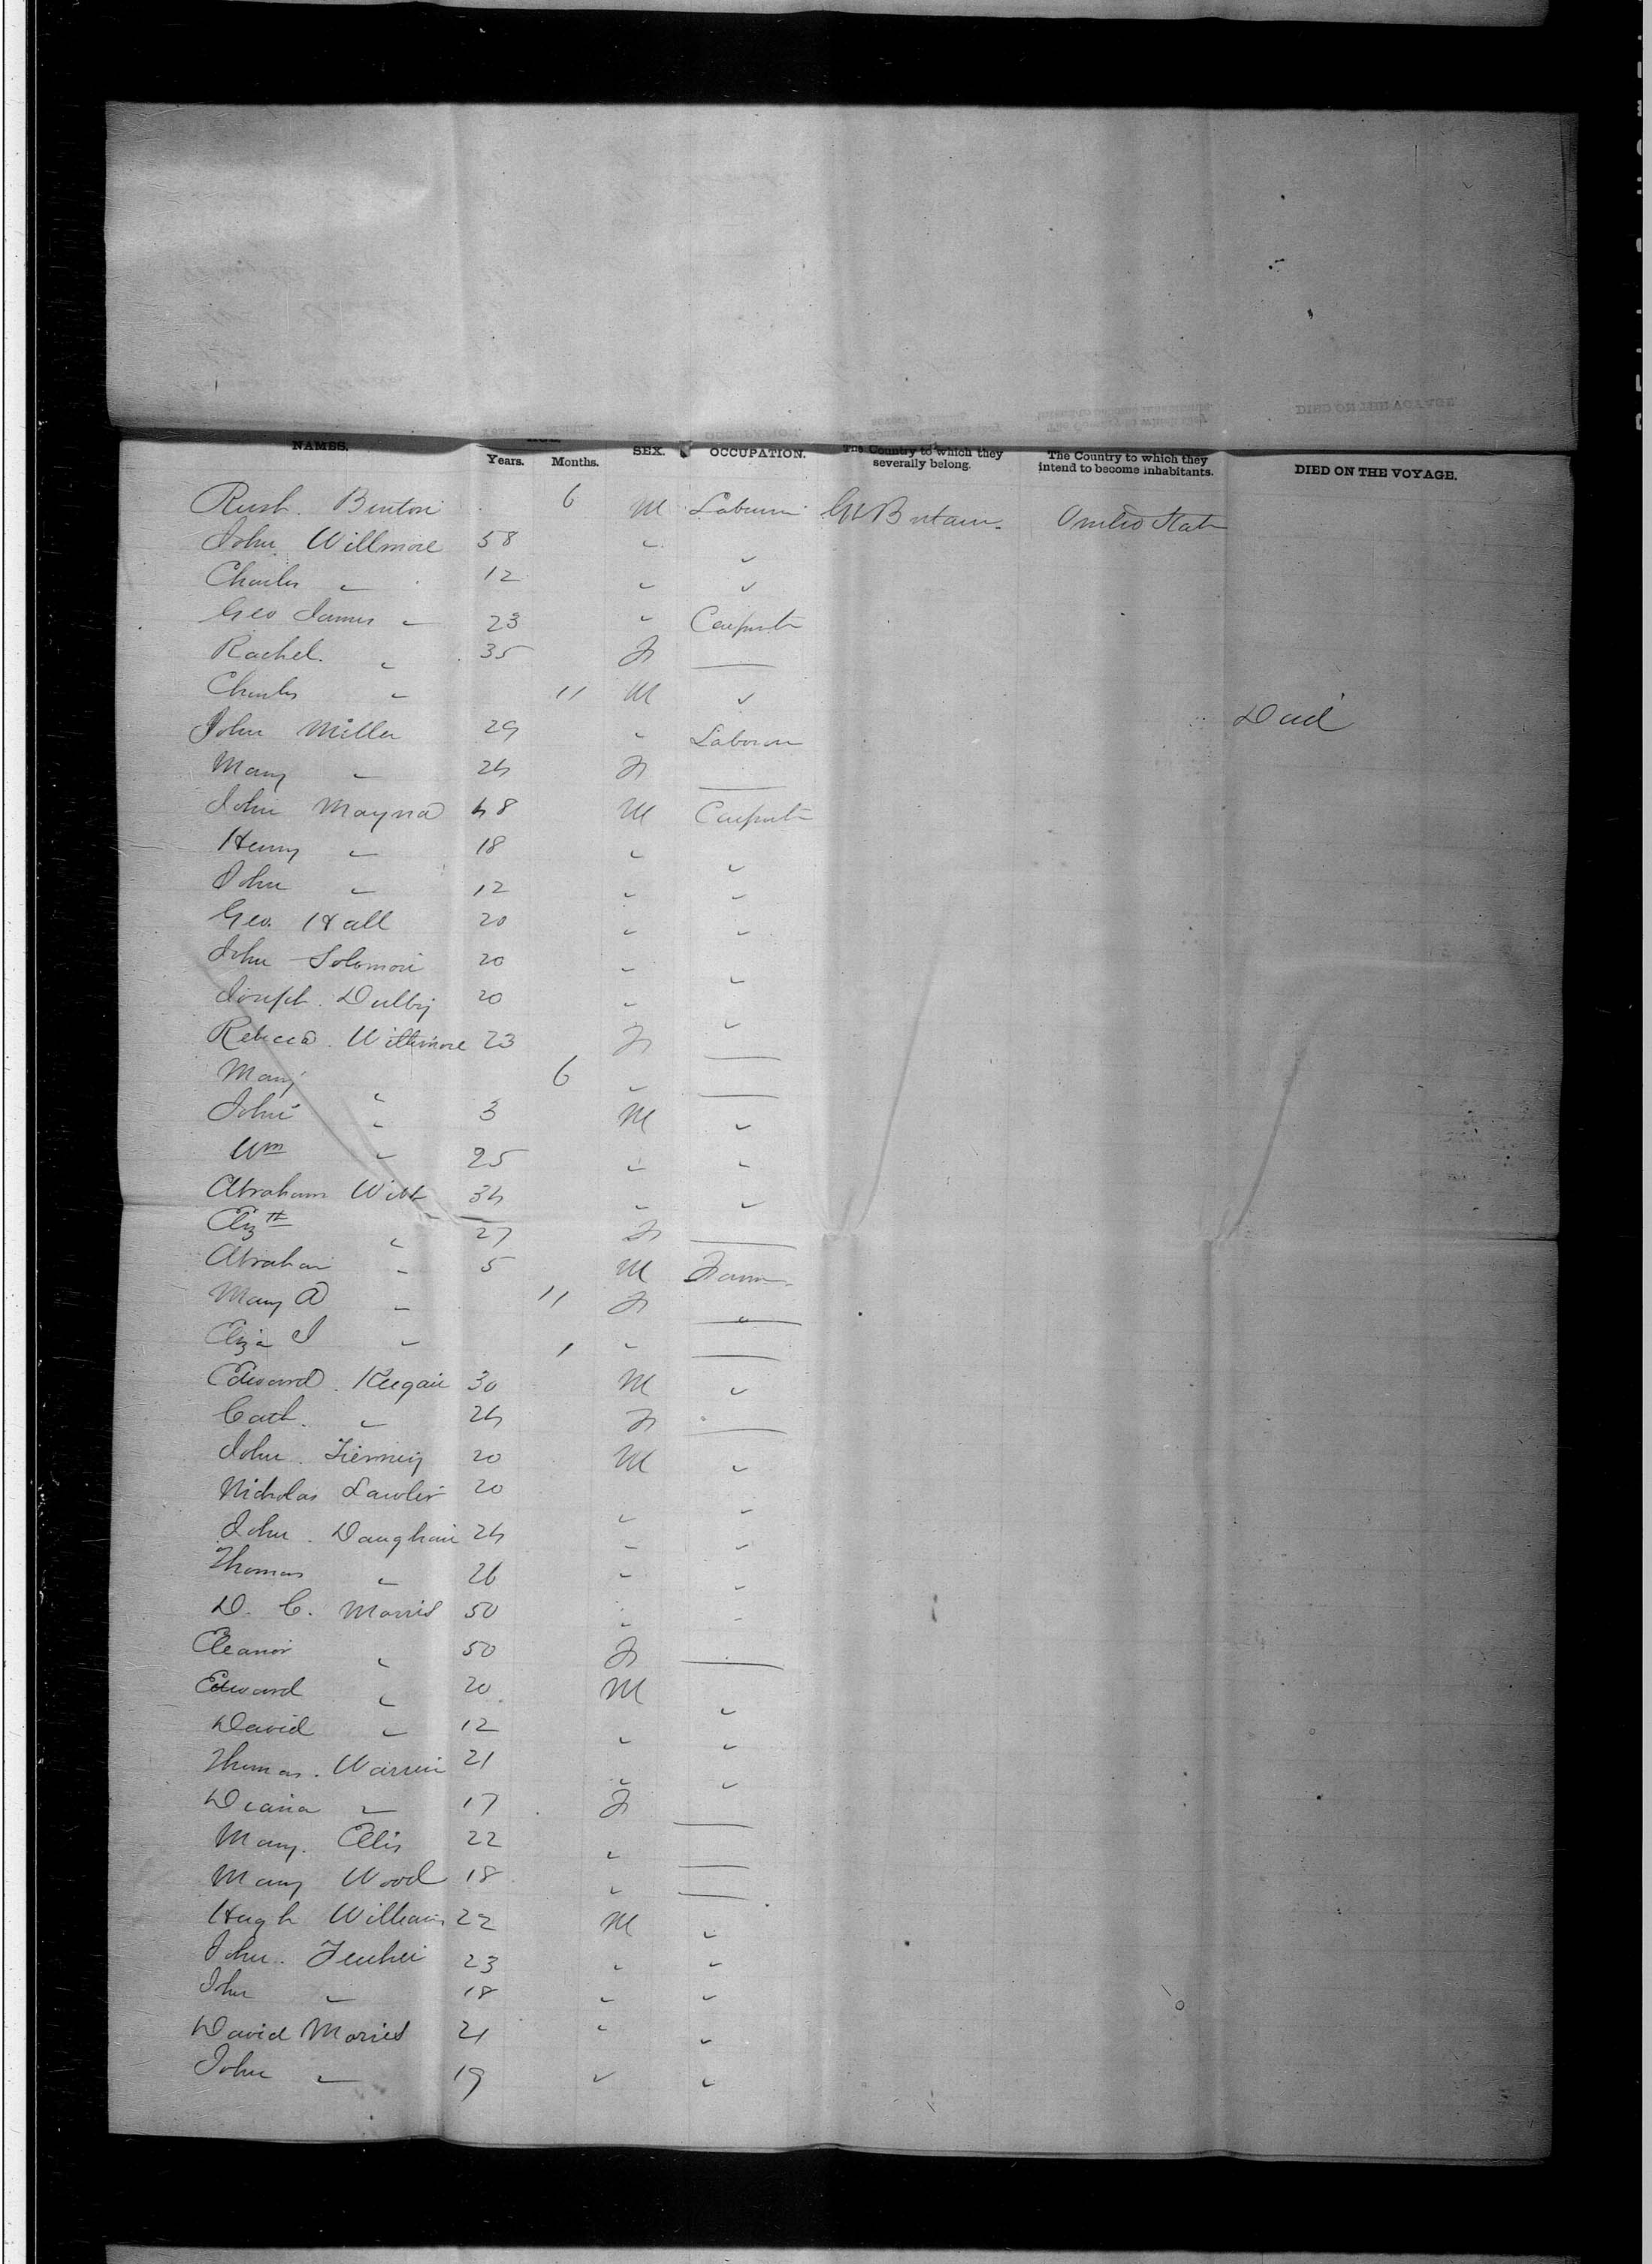 NAMES. Years. Months. SEX. OCCUPATION. The Country to which they severally belong. The Country to which they intend to become inhabitants. DIED ON THE VOYAGE.
Benton 6 M Gt Britain United State
John Willmore 58 "
Charles " 12 " "
Geo James " 23 "
Rachel " 35 F —
Charles " 11 M " Died
John Miller 29 "
Mary " 24 F —
John 48 M
Henry " 18 " "
John " 12 " "
Geo. Hall 20 " "
John Solomon 20 " "
Joseph 20 " "
Rebecca Willmore 23 F —
Mary " 6 " —
John " 3 M "
Wm " 25 " "
Abraham 34 " "
Elizth " 27 F —
Abraham " 5 M
Mary A " 11 F —
Eliza J " 1 " —
Edward Keegan 30 M "
Cath. " 24 F —
John Tierney 20 M "
Nicholas Lawler 20 " "
John 24 " "
Thomas " 26 " "
D. C. Morris 50 " "
Eleanor " 50 F —
Edward " 20 M "
David " 12 " "
Thomas Warren 21 " "
Diana " 17 F —
Mary Ellis 22 " —
Mary Wood 18 " —
Hugh Williams 22 M "
John 23 " "
John " 18 " "
David Morris 21 " "
John " 19 " "